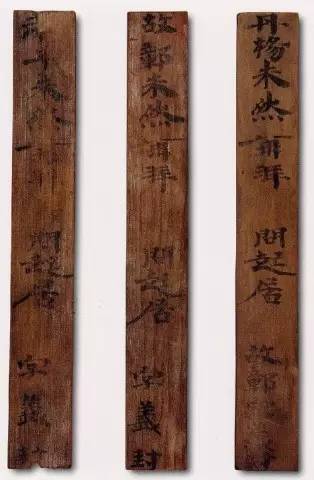 丹楊朱然再拜 問起居 故鄣字義封
故鄣朱然再拜 問起居 字義封
朱然 問起居 字義封